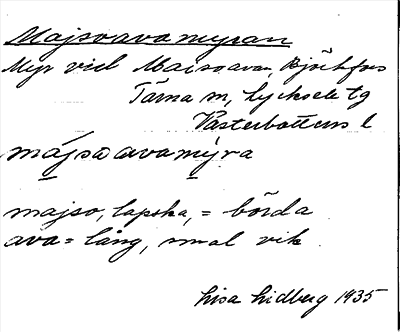 Majsoavamyran
Myr vid Maisoavan, Björkfors
Tärna sn, Lycksele tg
Västerbottens l
måjsaavamýra
majso, lapska, = börda
ava = lång, smal vik
Lisa Lidberg 1935